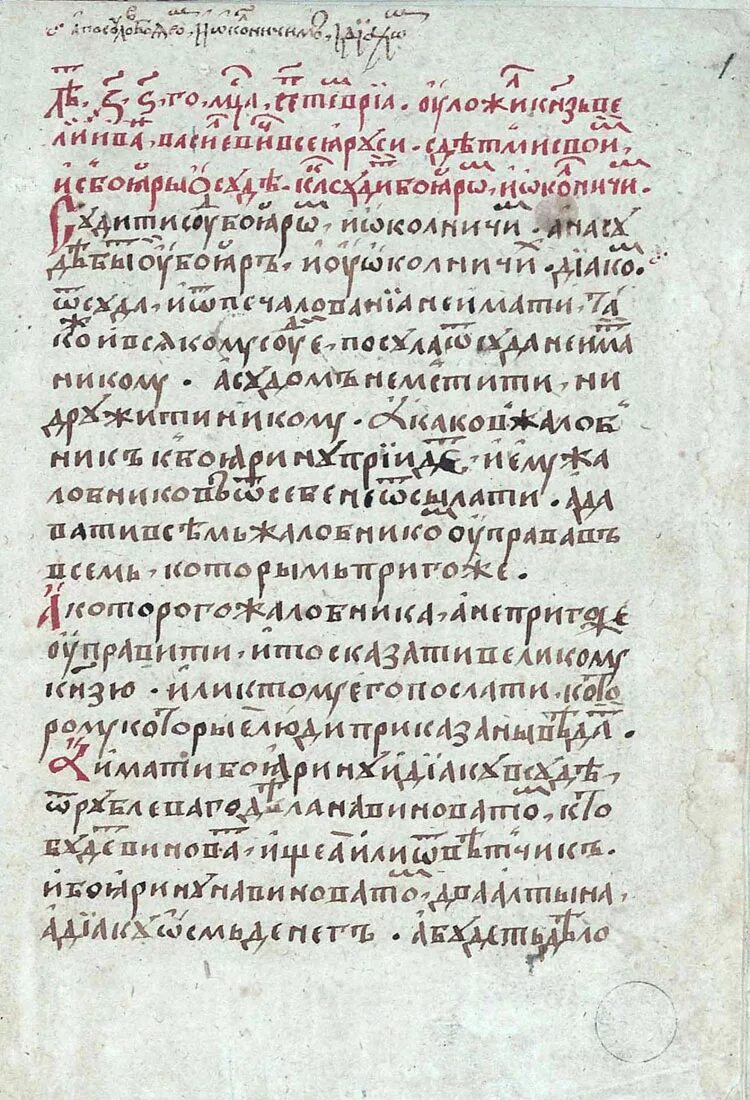 а посулов бояро, и ѡколничимъ, и дїако
Лѣт, ҂ꙁ ѕ, го, мцⷭ҇а, септевріа. оуложил кнѕь ве
ликїи іван, василевич всеꙗ руси. з дѣтми своими,
и с боꙗры о судѣ. как судити боꙗром, и ѡколничим.
Судити суд боꙗром, и ѡколничим. а на су
дѣ быти оу боꙗръ, и оу ѡколничих. дїаком.
ѿ суда, и ѿ печалованїа не имати, та
кож и всѧкому судїе, посула ѿ суда не имати
никому. а судомъ не мстити, ни
дружити никому. А каков жалоб
никъ к боꙗрину прїидет, и ему жа
лобниковъ ѿ себе не ѿсылати. а да
вати всѣмь жалобником оуправа въ
всемь, которымь пригоже.
А которого жалобника, а не пригоже
оуправити, и то сказати великому
кнѕю. или к тому его послати, кото
рому которые люди приказаны вѣдати.
А имати боꙗрину и дїаку в судѣ,
ѿ рублеваго дѣла на виноватом, кто
будет виноват, ищеа или ѿвѣтчикъ.
и боꙗрину на виноватом, два алтына,
а дїаку ѡсмь денегъ. а будеть дѣло
1